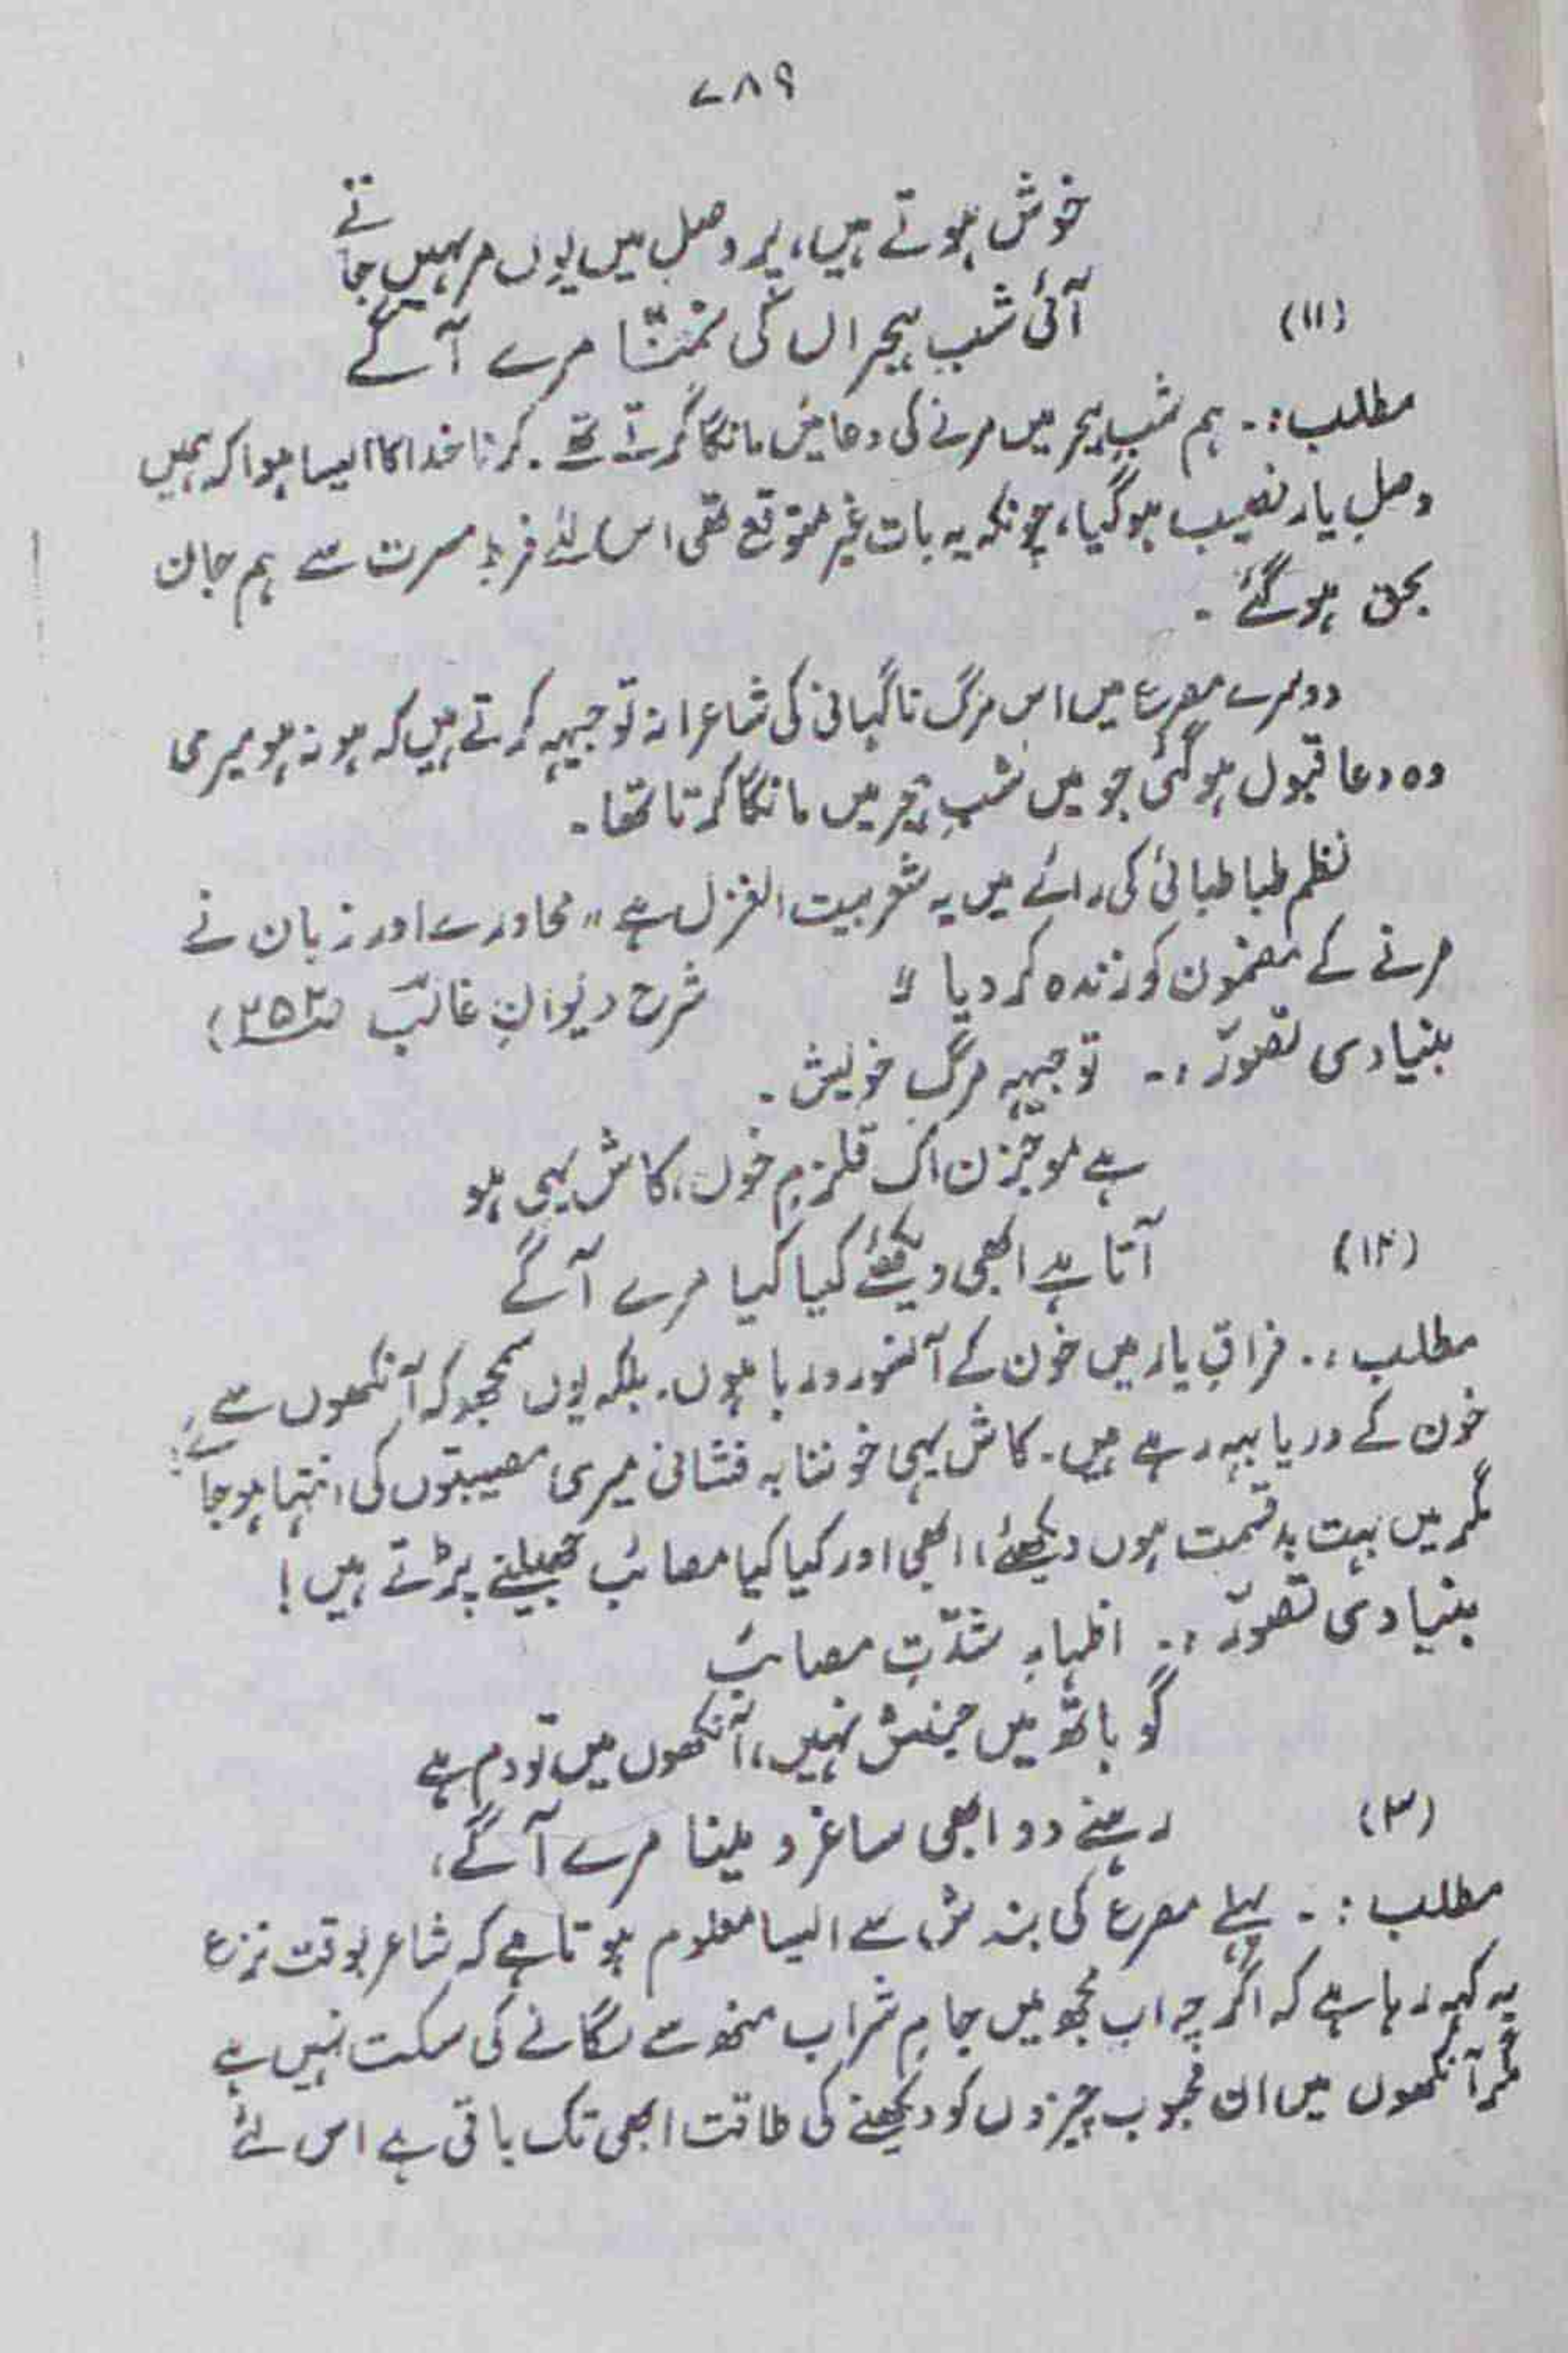 ۷۸۹
خوش ہوتے ہیں، پر وصل میں یوں مر نہیں جاتے
(۱۱) آئی شبِ ہجراں کی تمنّا مرے آگے
مطلب:۔ ہم شبِ ہجر میں مرنے کی دعائیں مانگا کرتے تھے۔ کرنا خدا کا ایسا ہوا کہ ہمیں
وصلِ یار نصیب ہوگیا، چونکہ یہ بات غیر متوقع تھی اس لئے فرطِ مسرت سے ہم جان
بحق ہوگئے۔
دوسرے مصرع میں اس مرگ ناگہانی کی شاعرانہ توجیہہ کرتے ہیں کہ ہو نہ ہو میری
وہ دعا قبول ہوگئی جو میں شبِ ہجر میں مانگا کرتا تھا۔
نظم طباطبائی کی رائے میں یہ شعر بیت الغزل ہے "محاورے اور زبان نے
مرنے کے مضمون کو زندہ کر دیا" شرح دیوانِ غالبؔ
بنیادی تصوّر:۔ توجیہہ مرگ خویش۔
ہے موجزن اک قلزمِ خوں، کاش یہی ہو
(۱۲) آتا ہے ابھی دیکھئے کیا کیا مرے آگے
مطلب:۔ فراقِ یار میں خون کے آنسو رو رہا ہوں۔ بلکہ یوں سمجھو کہ آنکھوں سے
خون کے دریا بہہ رہے ہیں۔ کاش یہی خوننابہ فشانی میری مصیبتوں کی انتہا ہو جائے
مگر میں بہت بدقسمت ہوں دیکھئے! ابھی اور کیا کیا مصائب جھیلنے پڑتے ہیں!
بنیادی تصوّر:۔ اظہارِ شدّتِ مصائب
گو ہاتھ میں جنبش نہیں، آنکھوں میں تو دم ہے
(۳) رہنے دو ابھی ساغر و مینا مرے آگے،
مطلب:۔ پہلے مصرع کی بندش سے ایسا معلوم ہوتا ہے کہ شاعر بوقت نزع
یہ کہہ رہا ہے کہ اگرچہ اب مجھ میں جامِ شراب منھ سے لگانے کی سکت نہیں ہے
مگر آنکھوں میں ان محبوب چیزوں کو دیکھنے کی طاقت ابھی تک باقی ہے اس لئے